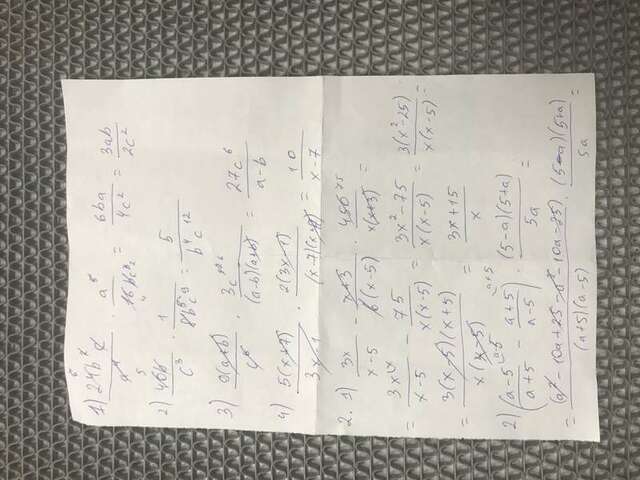 1) 24b² c / a⁴ · a⁵ / 16 b c³ = 6ba / 4c² = 3ab / 2c²
2) 40b / c³ · 1 / 8b⁵c⁹ = 5 / b⁴c¹²
3) 9(a+b) / c⁶ · 3c¹² / (a-b)(a+b) = 27c⁶ / a-b
4) 5(x+7) / 3x-1 · 2(3x-1) / (x-7)(x+7) = 10 / x-7
2. 1) 3x / x-5 - x+3 / 6(x-5) · 450 75 / x(x+3) =
= 3x \x / x-5 - 75 / x(x-5) = 3x²-75 / x(x-5) = 3(x²-25) / x(x-5) =
= 3(x-5)(x+5) / x(x-5) = 3x+15 / x
2) (a-5 \a-5 / a+5 - a+5 \a+5 / a-5) · (5-a)(5+a) / 5a =
= (a²-10a+25-a²-10a-25) / (a+5)(a-5) · (5-a)(5+a) / 5a =